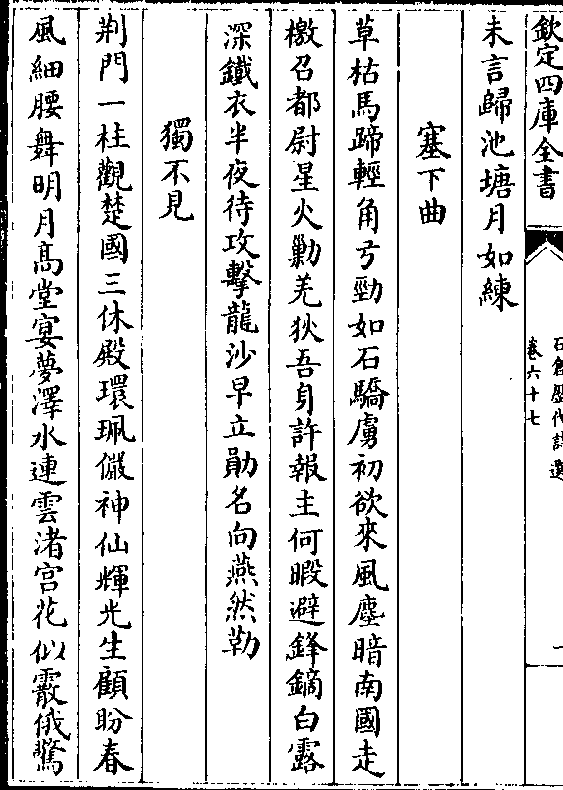 欽定四庫全書
石倉歷代詩選
卷六十七
一
未言歸池塘月如練
塞下曲
草枯馬蹄輕角弓勁如石驕虜初欲來風塵暗南國走
檄召都尉星火勦羌狄吾身許報主何暇避鋒鏑白露
深鐵衣半夜待攻擊龍沙早立勛名向燕然勒
獨不見
荆門一柱觀楚國三休殿環珮儼神仙輝光生顧盼春
風細腰舞明月髙堂宴夢澤水連雲渚宫花似霰俄驚